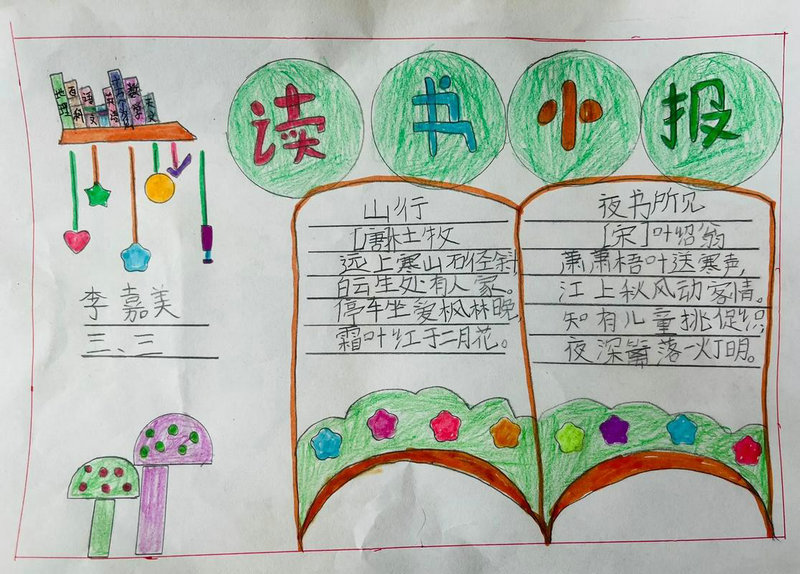 读书小报
地理
百科
语文
英语
数学
天文
李嘉美
三、三
山行
[唐]杜牧
远上寒山石径斜
白云生处有人家。
停车坐爱枫林晚,
霜叶红于二月花。
夜书所见
[宋]叶绍翁
萧萧梧叶送寒声,
江上秋风动客情。
知有儿童挑促织,
夜深篱落一灯明。